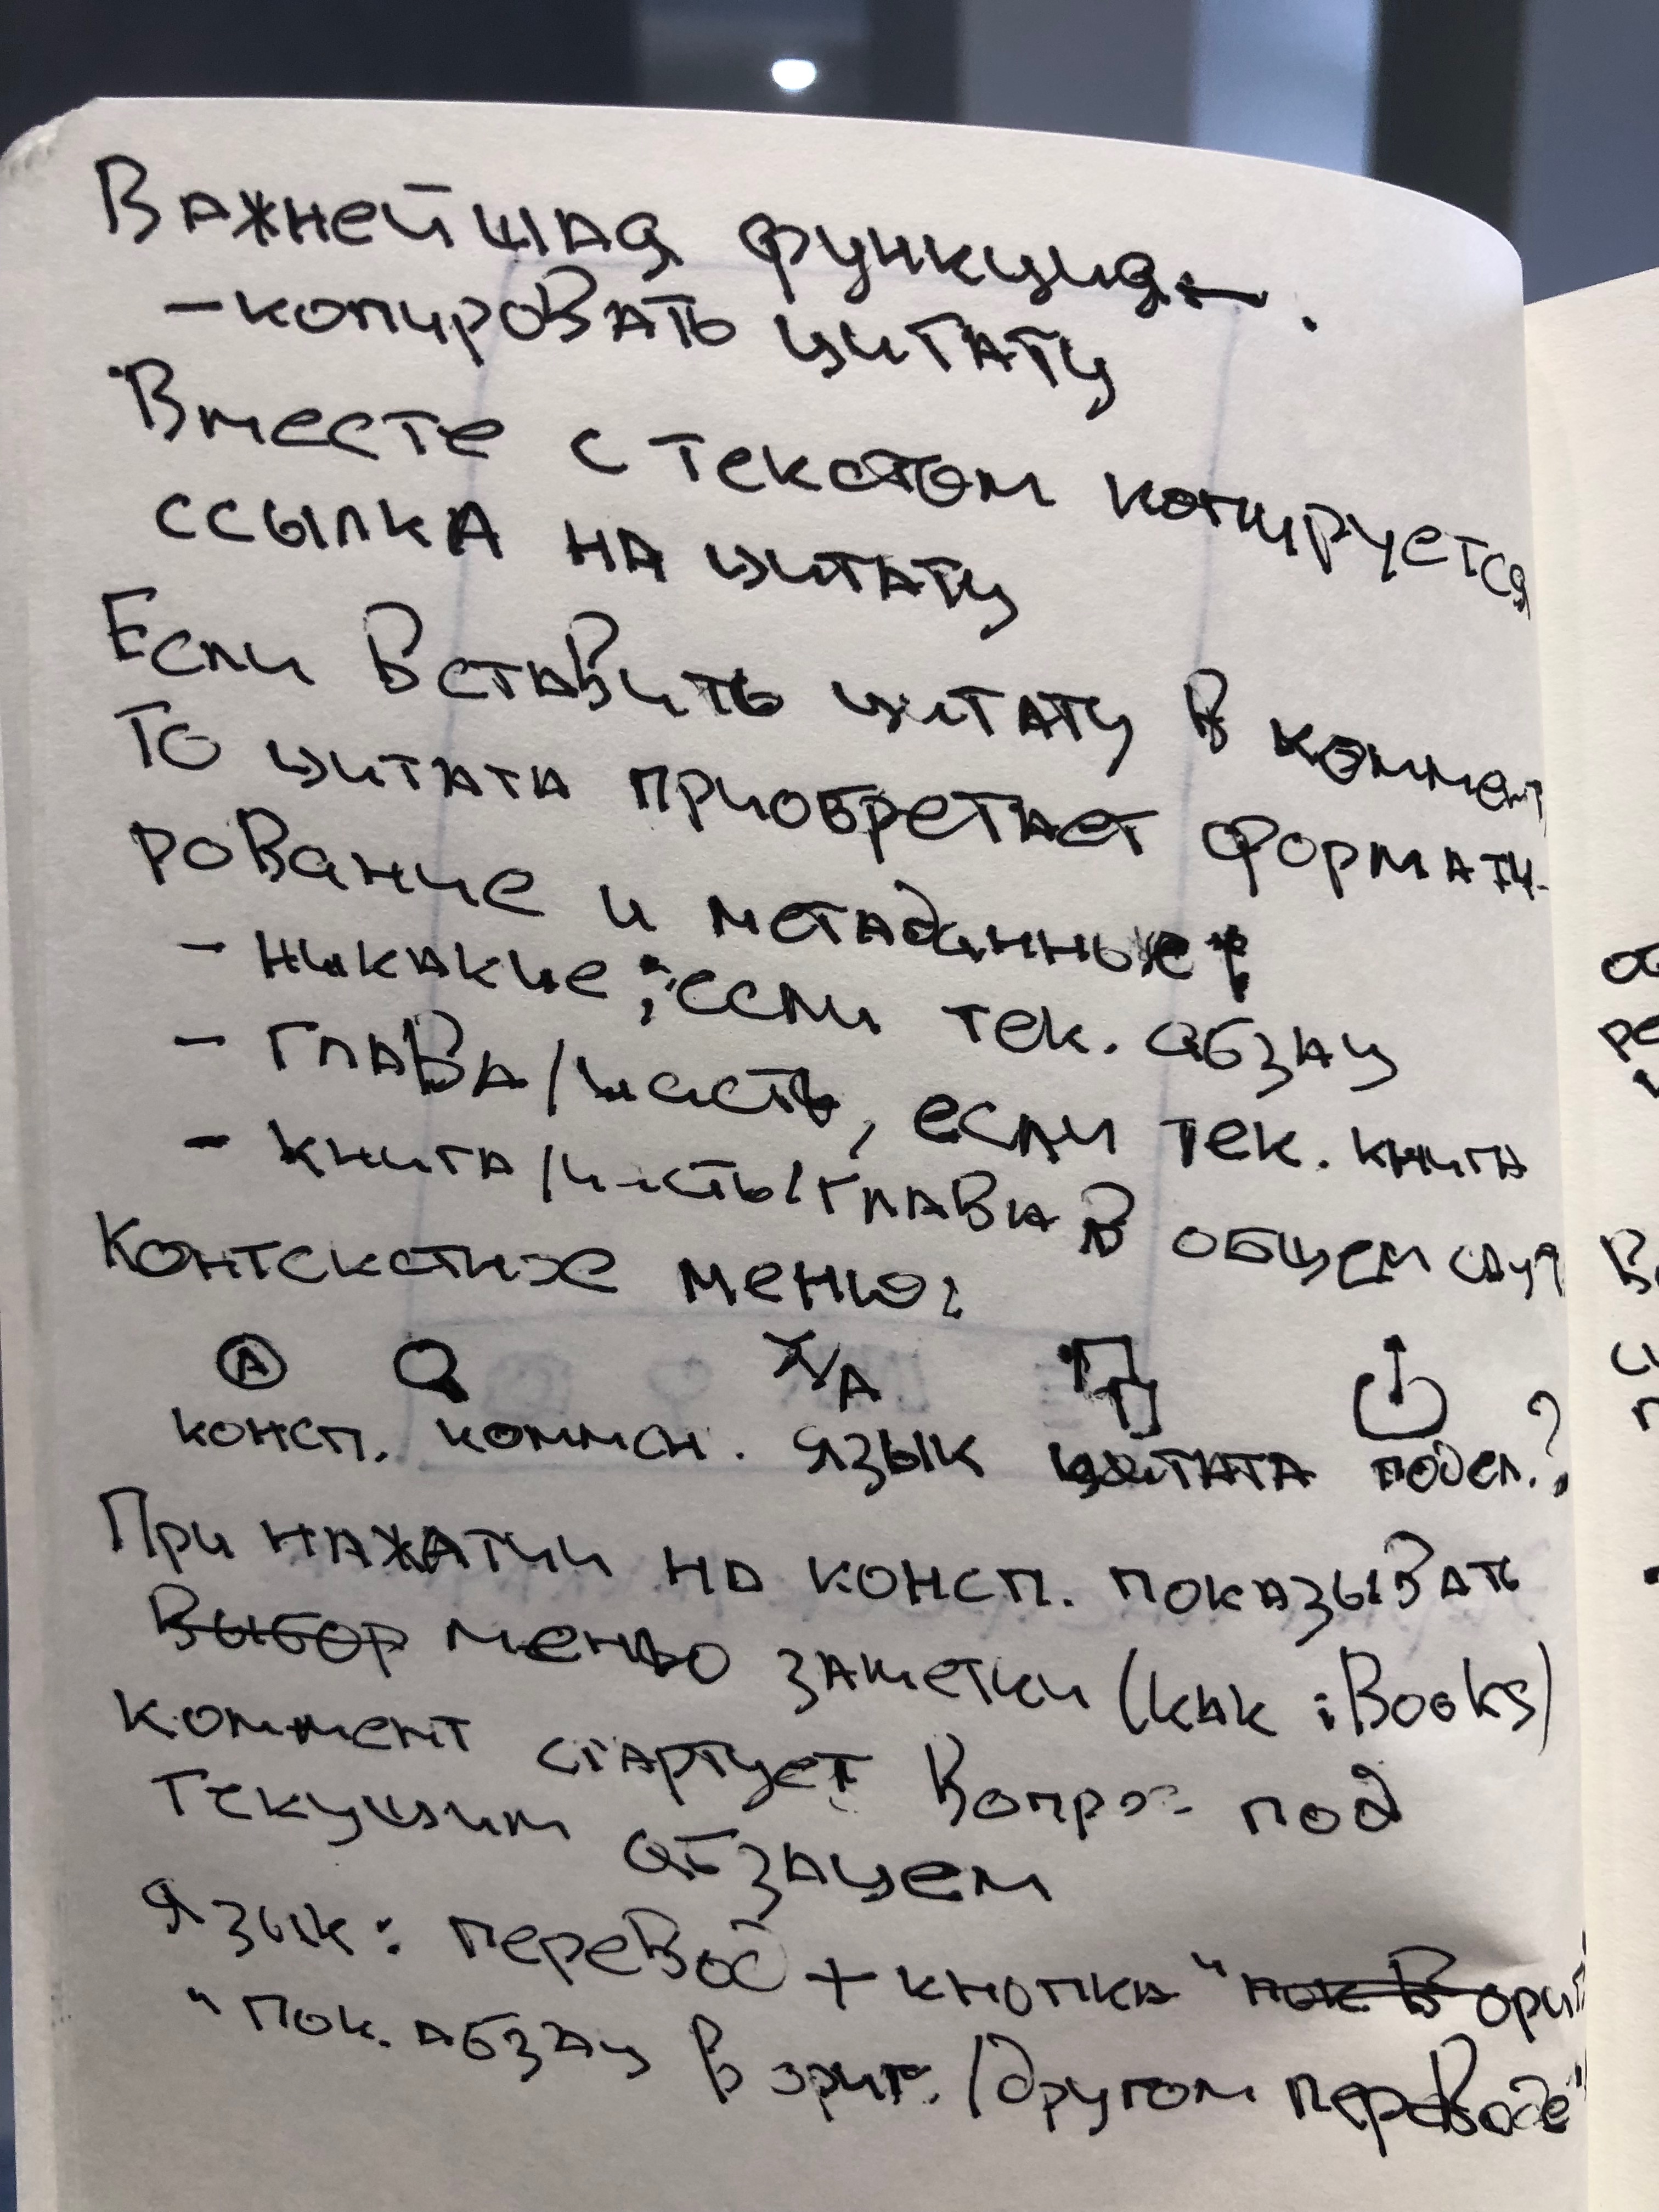 Важнейшая функция.
– копировать цитату
Вместе с текстом копируется
ссылка на цитату
Если вставить цитату в коммент
то цитата приобретает формати-
рование и метаданные:
– никакие, если тек. абзац
– глава/часть, если тек. книга
– книга/часть/глава в общем случ
Контекстное меню:
А
文/A
консп. коммен. язык цитата подел.?
При нажатии на консп. показывать
выбор меню заметки (как iBooks)
коммент стартует вопрос под
текущим абзацем
язык: перевод + кнопка "пок в ориг
"пок. абзац в ориг. /другом переводе"